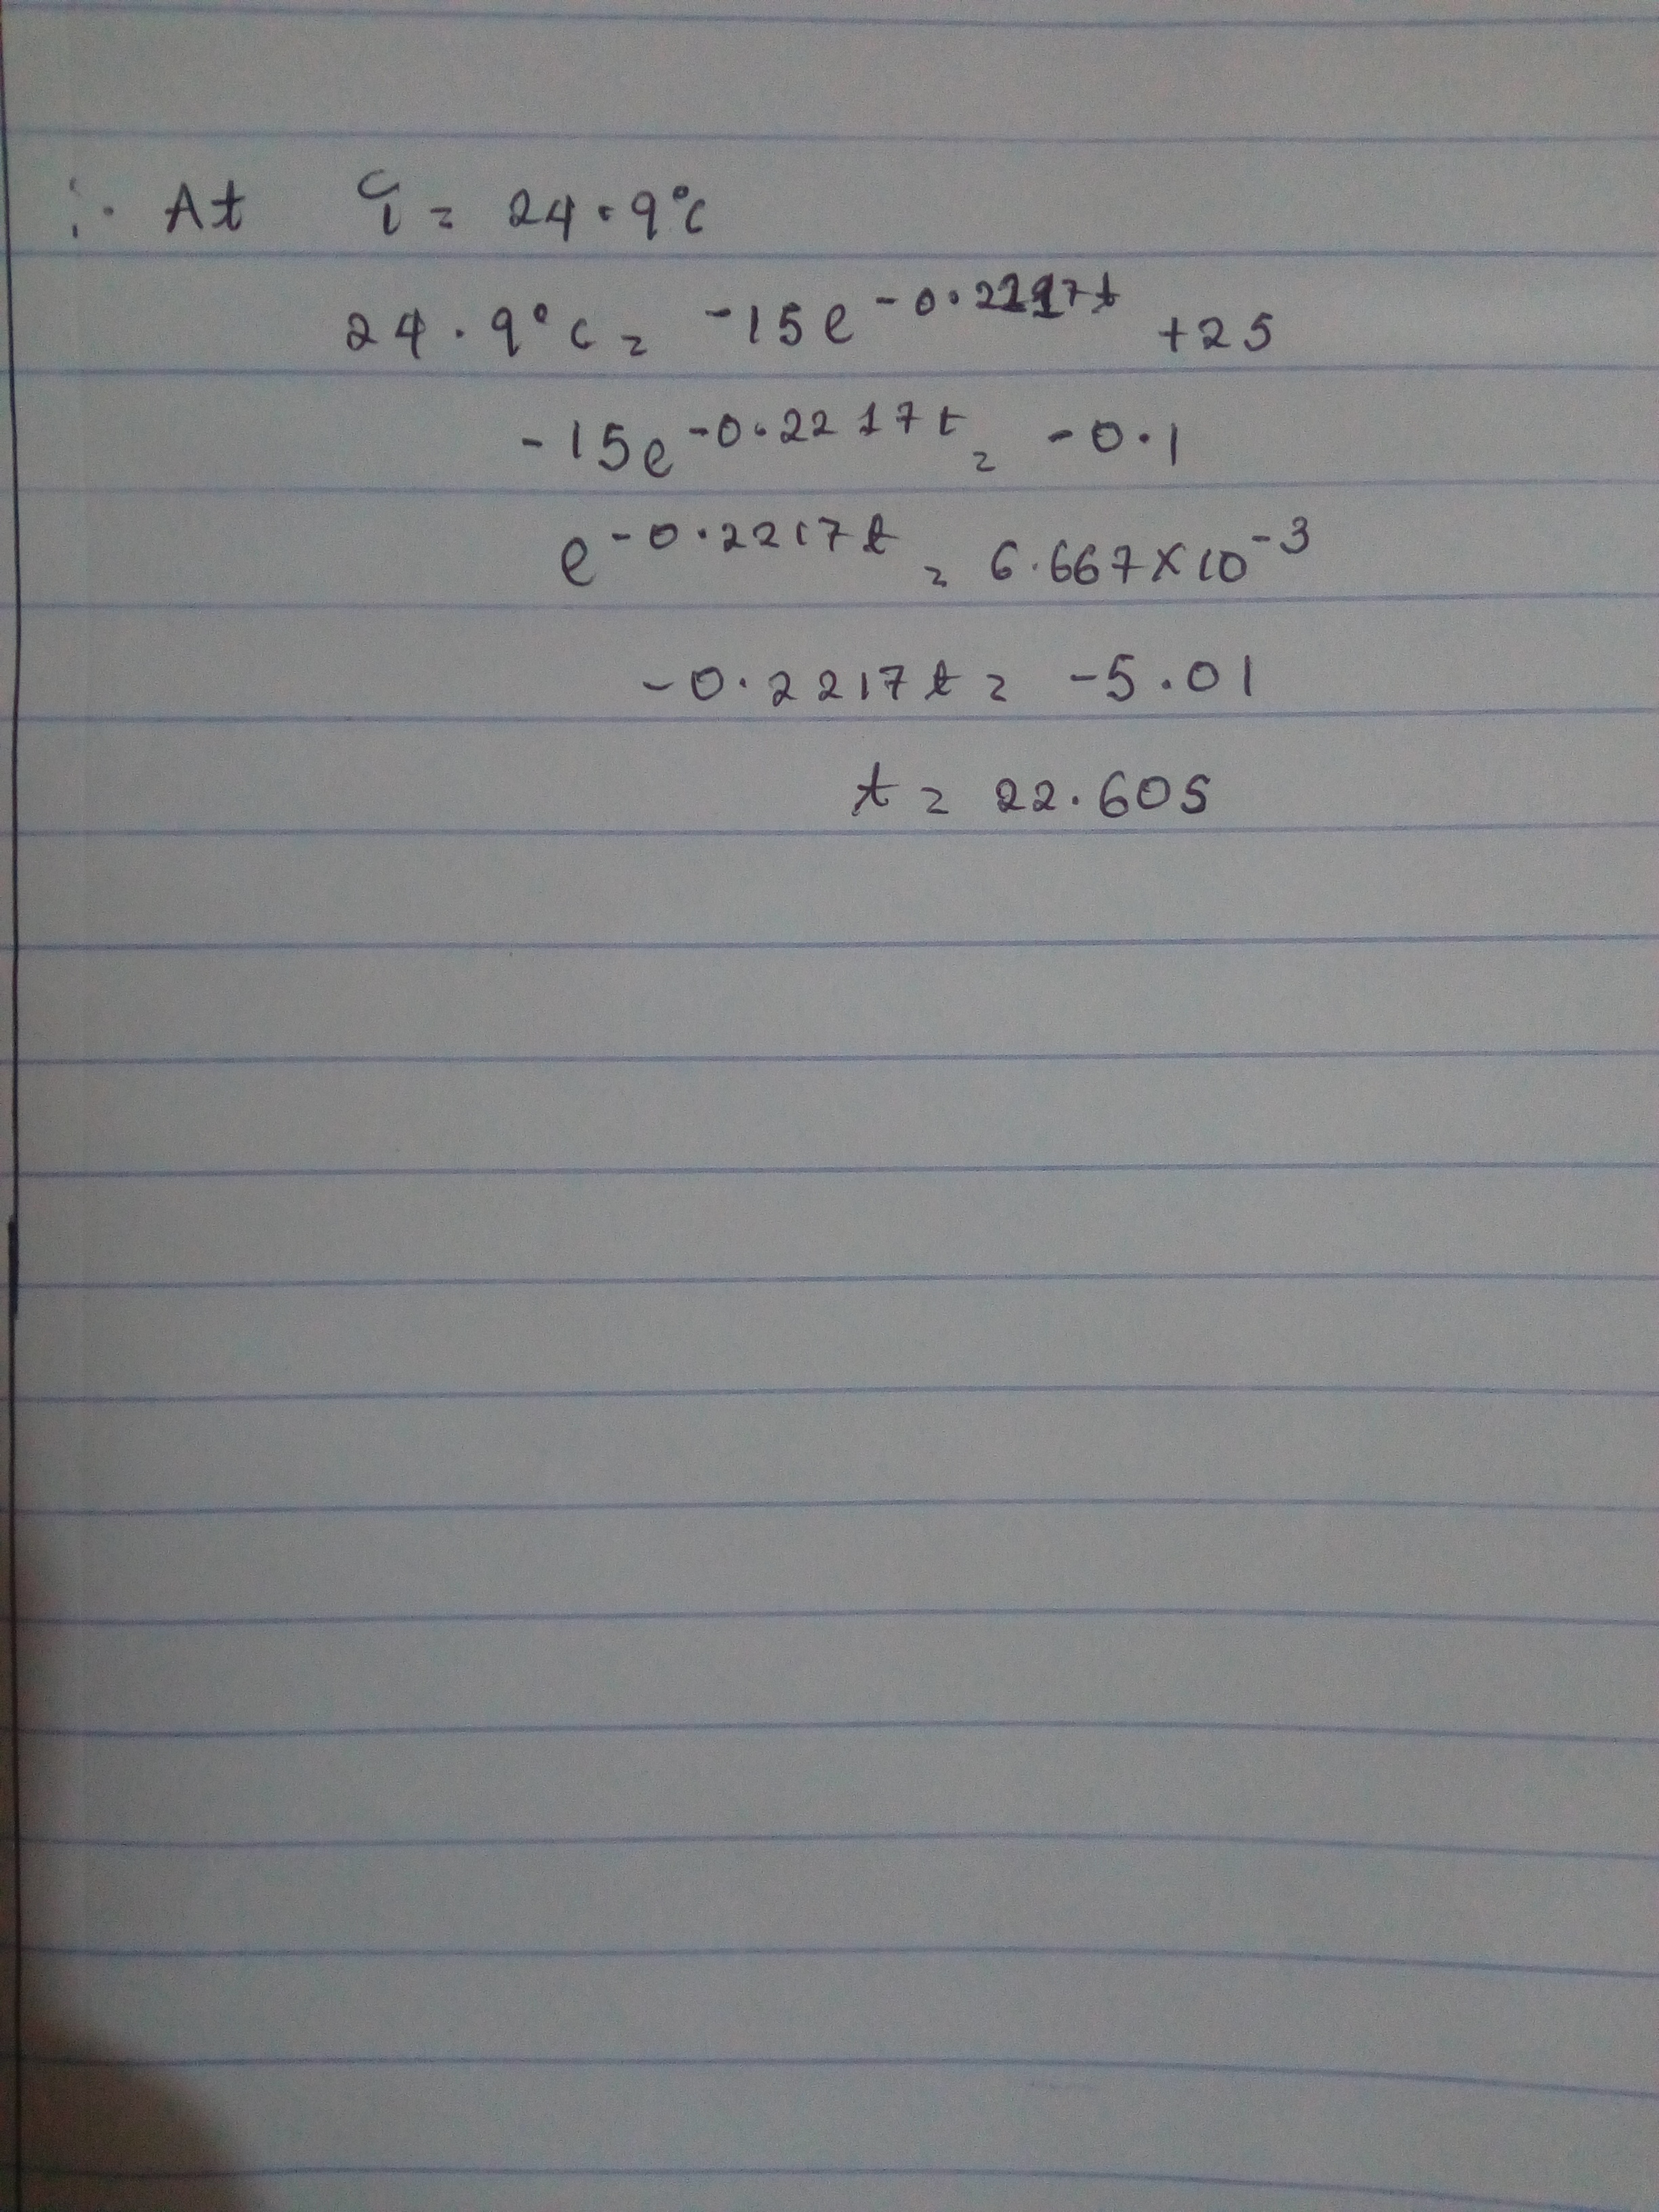 ∴ At T = 24.9°C
24.9°C = -15e^-0.2217t +25
-15e^-0.2217t = -0.1
e^-0.2217t = 6.667×10^-3
-0.2217t = -5.01
t = 22.605